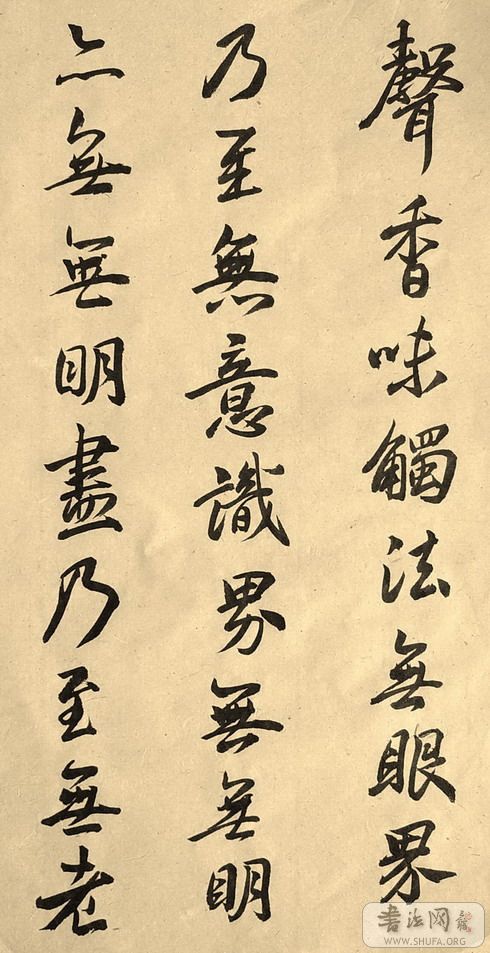 聲香味觸法無眼界
乃至無意識界無無明
亦無無明盡乃至無老
書法网
WWW.SHUFA.ORG